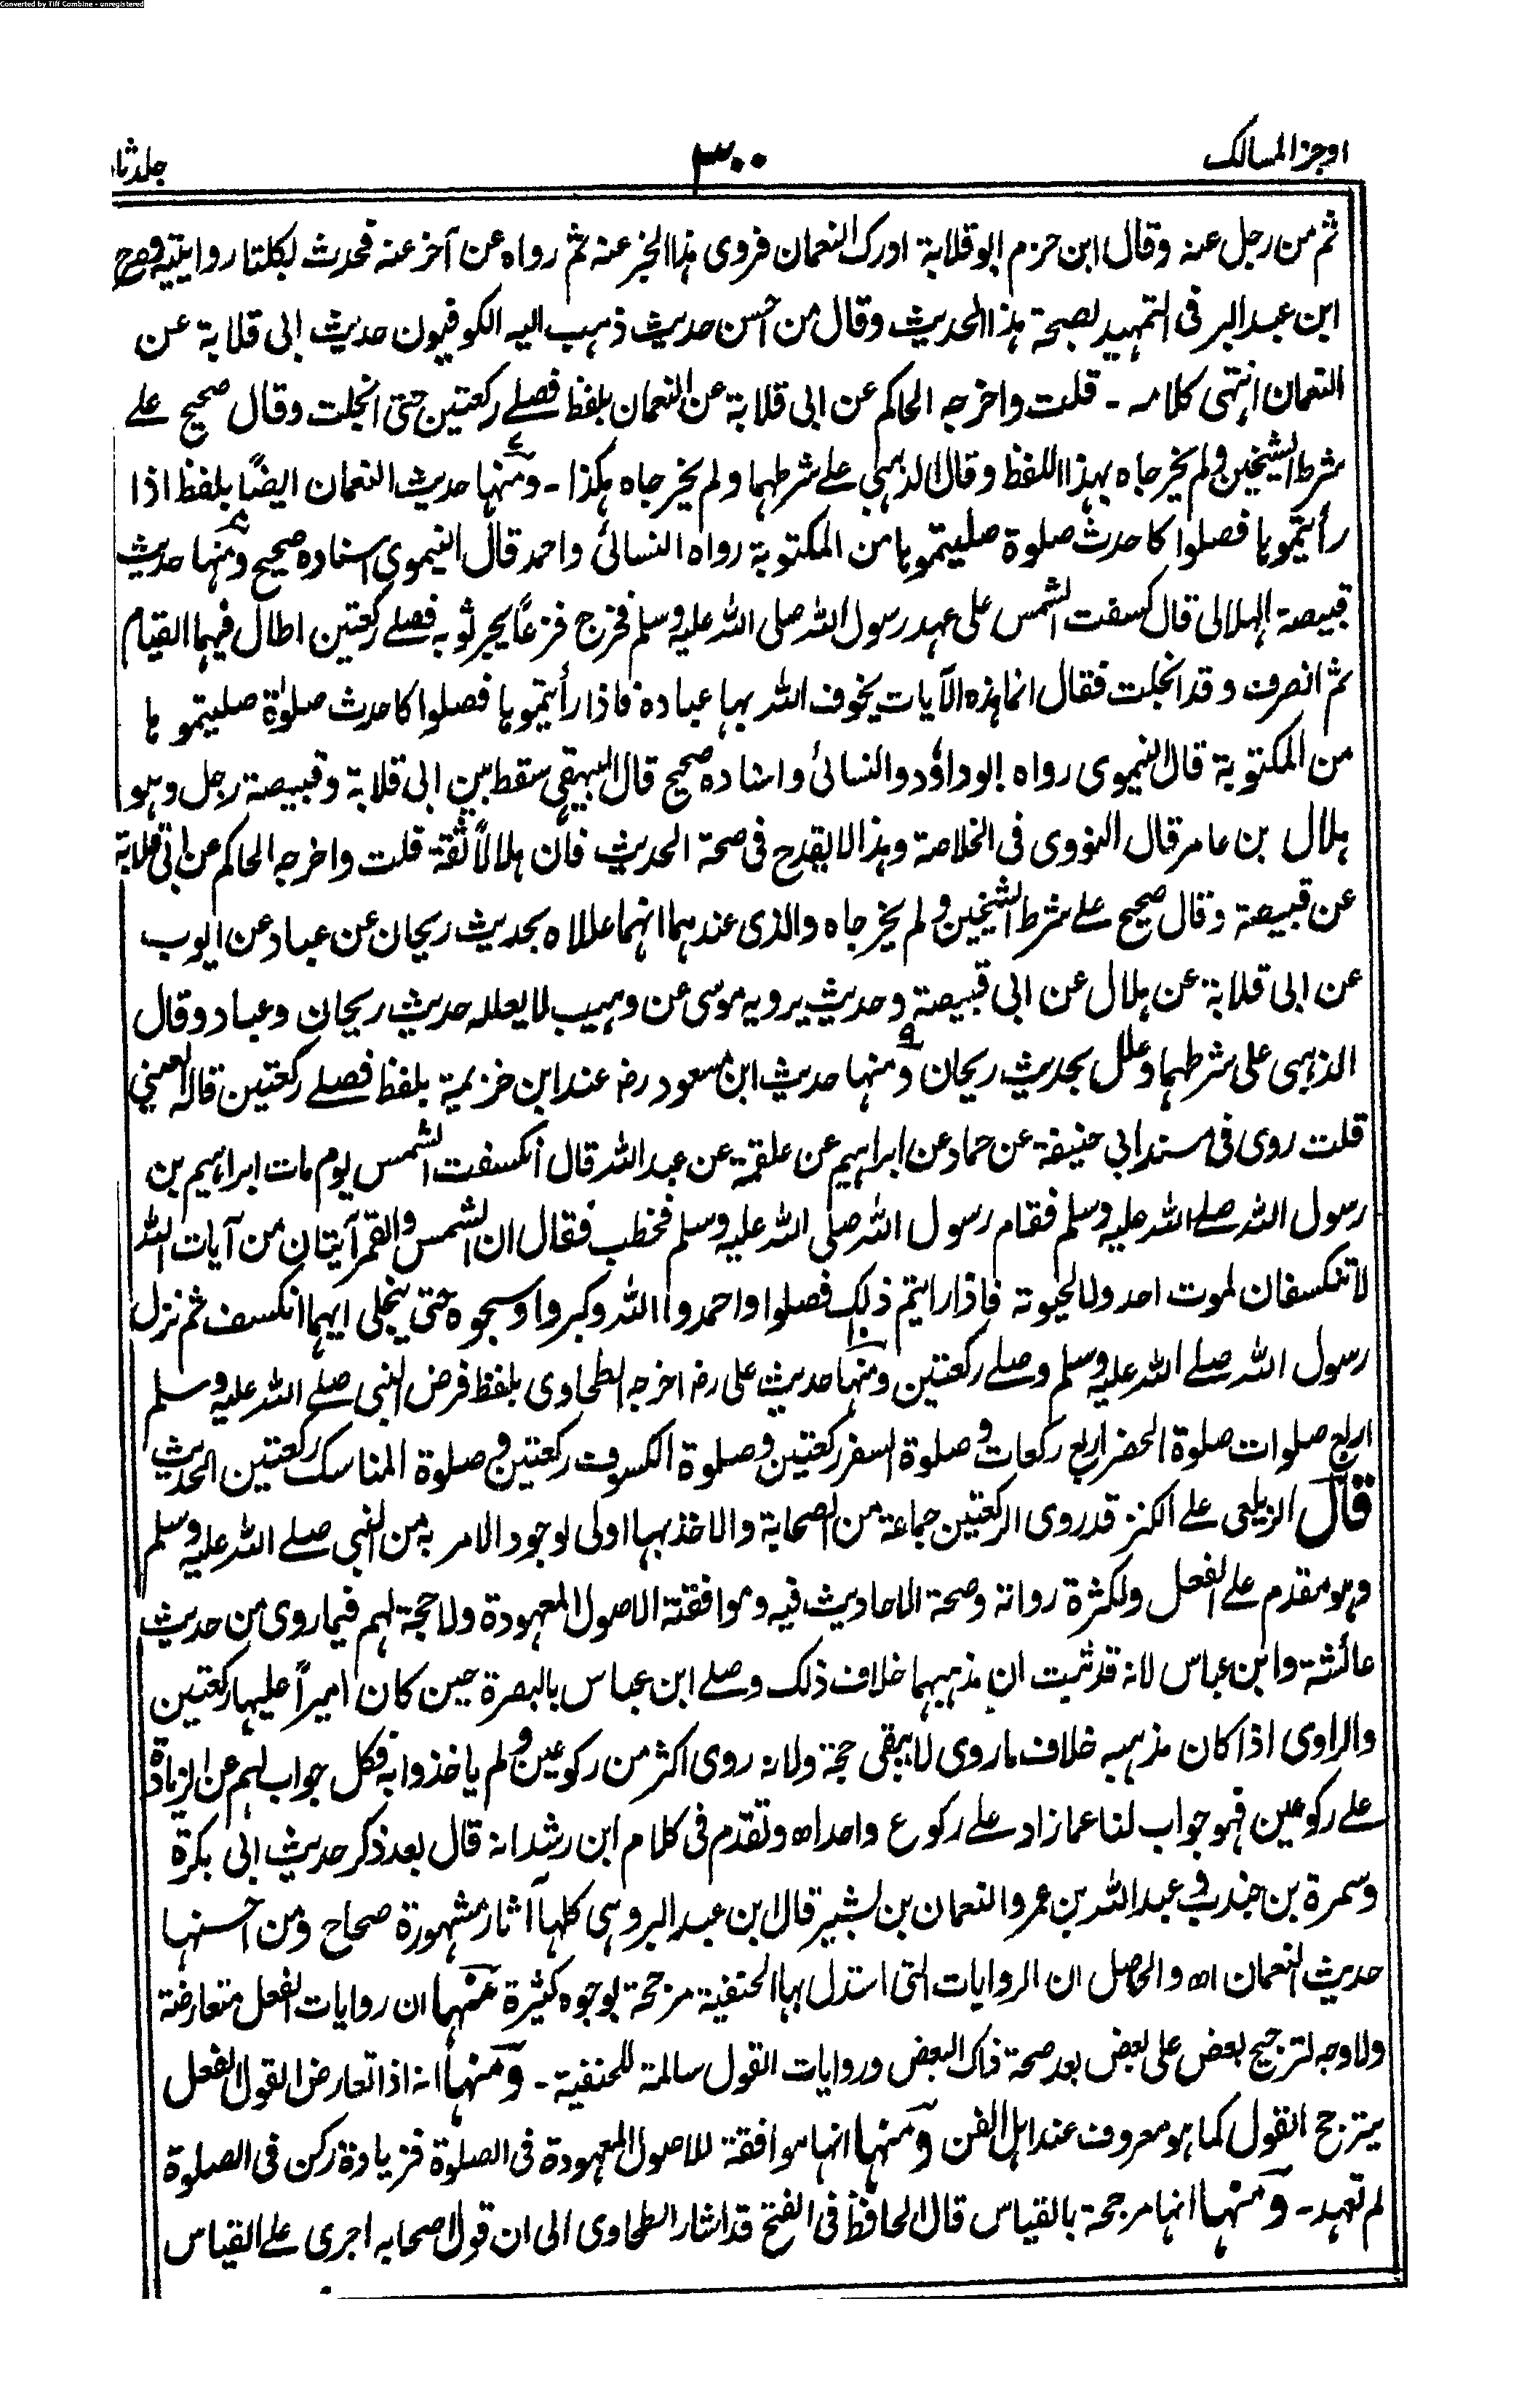 Converted by Tiff Combine - unregistered
اوجز المسالك
٣٠٠
جلد ثا
ثم من رجل عنه وقال ابن حزم ابو قلابة ادرك النعمان فروى هذا الخبر عنه ثم رواه عن آخر عنه فحدث بكلتا روايتيه وصرح
ابن عبد البر فى التمهيد لصحة هذا الحديث وقال من احسن حديث ذهب اليه الكوفيون حديث ابى قلابة عن
النعمان انتهى كلامه ـ قلت واخرجه الحاكم عن ابى قلابة عن النعمان بلفظ فصلے ركعتين حتى انجلت وقال صحيح علے
شرط الشيخين ولم يخرجاه بهذا اللفظ وقال الذهبى علے شرطهما ولم يخرجاه هكذا ـ ومنها حديث النعمان ايضًا بلفظ اذا
رأيتموها فصلوا كاحدث صلوة صليتموها من المكتوبة رواه النسائى واحمد قال النيموى اسناده صحيح ومنها حديث
قبيصة الهلالى قال كسفت الشمس على عهد رسول الله صلى الله عليه وسلم فخرج فزعًا يجر ثوبه فصلے ركعتين اطال فيهما القيام
ثم انصرف وقد انجلت فقال انما هذه الآيات يخوف الله بها عباده فاذا رأيتموها فصلوا كاحدث صلوٰة صليتموها
من المكتوبة قال النيموى رواه ابو داؤد والنسائى واسناده صحيح قال البيهقى سقط بين ابى قلابة وقبيصة رجل وهو
هلال بن عامر قال النووى فى الخلاصة وهذا لا يقدح فى صحة الحديث فان هلالاً ثقة قلت واخرجه الحاكم عن ابى قلابة
عن قبيصة وقال صحيح علے شرط الشيخين ولم يخرجاه والذى عندهما انهما عللاه بحديث ريحان عن عباد عن ايوب
عن ابى قلابة عن هلال عن ابى قبيصة وحديث يرويه موسى عن وهيب لا يعلله حديث ريحان وعباد وقال
الذهبى على شرطهما وعلل بحديث ريحان ومنها حديث ابن مسعود رضـ عند ابن خزيمة بلفظ فصلے ركعتين قاله العينى
قلت روى فى مسند ابى حنيفة عن حماد عن ابراهيم عن علقمة عن عبد الله قال انكسفت الشمس يوم مات ابراهيم بن
رسول الله صلے الله عليه وسلم فقام رسول الله صلى الله عليه وسلم فخطب فقال ان الشمس والقمر آيتان من آيات الله
لا تنكسفان لموت احد ولا لحيوته فاذا رايتم ذلك فصلوا واحمدوا الله وكبروا وسبحوه حتى ينجلى ايهما انكسف ثم نزل
رسول الله صلے الله عليه وسلم وصلے ركعتين ومنها حديث على رضـ اخرجه الطحاوى بلفظ فرض النبى صلے الله عليه وسلم
اربع صلوات صلوة الحضر اربع ركعات وصلوة السفر ركعتين وصلوة الكسوف ركعتين وصلوة المناسك ركعتين الحديث
قال الزيلعى علے الكنز قد روى الركعتين جماعة من الصحابة والاخذ بها اولى لوجود الامر به من النبى صلے الله عليه وسلم
وهو مقدم علے الفعل ولكثرة رواته وصحة الاحاديث فيه وموافقته الاصول المعهودة ولا حجة لهم فيما روى من حديث
عائشة وابن عباس لانه قد ثبت ان مذهبهما خلاف ذلك وصلے ابن عباس بالبصرة حين كان اميراً عليها ركعتين
والراوى اذا كان مذهبه خلاف ما روى لا يبقى حجة ولانه روى اكثر من ركوعين ولم ياخذوا به فكل جواب لهم عن الزيادة
علے ركوعين فهو جواب لنا عما زاد علے ركوع واحد اه وتقدم فى كلام ابن رشد انه قال بعد ذكر حديث ابى بكرة
وسمرة بن جندب وعبد الله بن عمر والنعمان بن بشير قال ابن عبد البر وهى كلها آثار مشهورة صحاح ومن احسنها
حديث النعمان اه والحاصل ان الروايات التى استدل بها الحنفية مرجحة بوجوه كثيرة منها ان روايات الفعل متعارضة
ولا وجه لترجيح بعض على بعض بعد صحة ذاك البعض وروايات القول سالمة للحنفية ـ ومنها انه اذا تعارض القول الفعل
يترجح القول كما هو معروف عند اهل الفن ومنها انها موافقة للاصول المعهودة فى الصلوة فزيادة ركن فى الصلوة
لم تعهد ـ ومنها انها مرجحة بالقياس قال الحافظ فى الفتح قد اشار الطحاوى الى ان قول اصحابه اجرى علے القياس